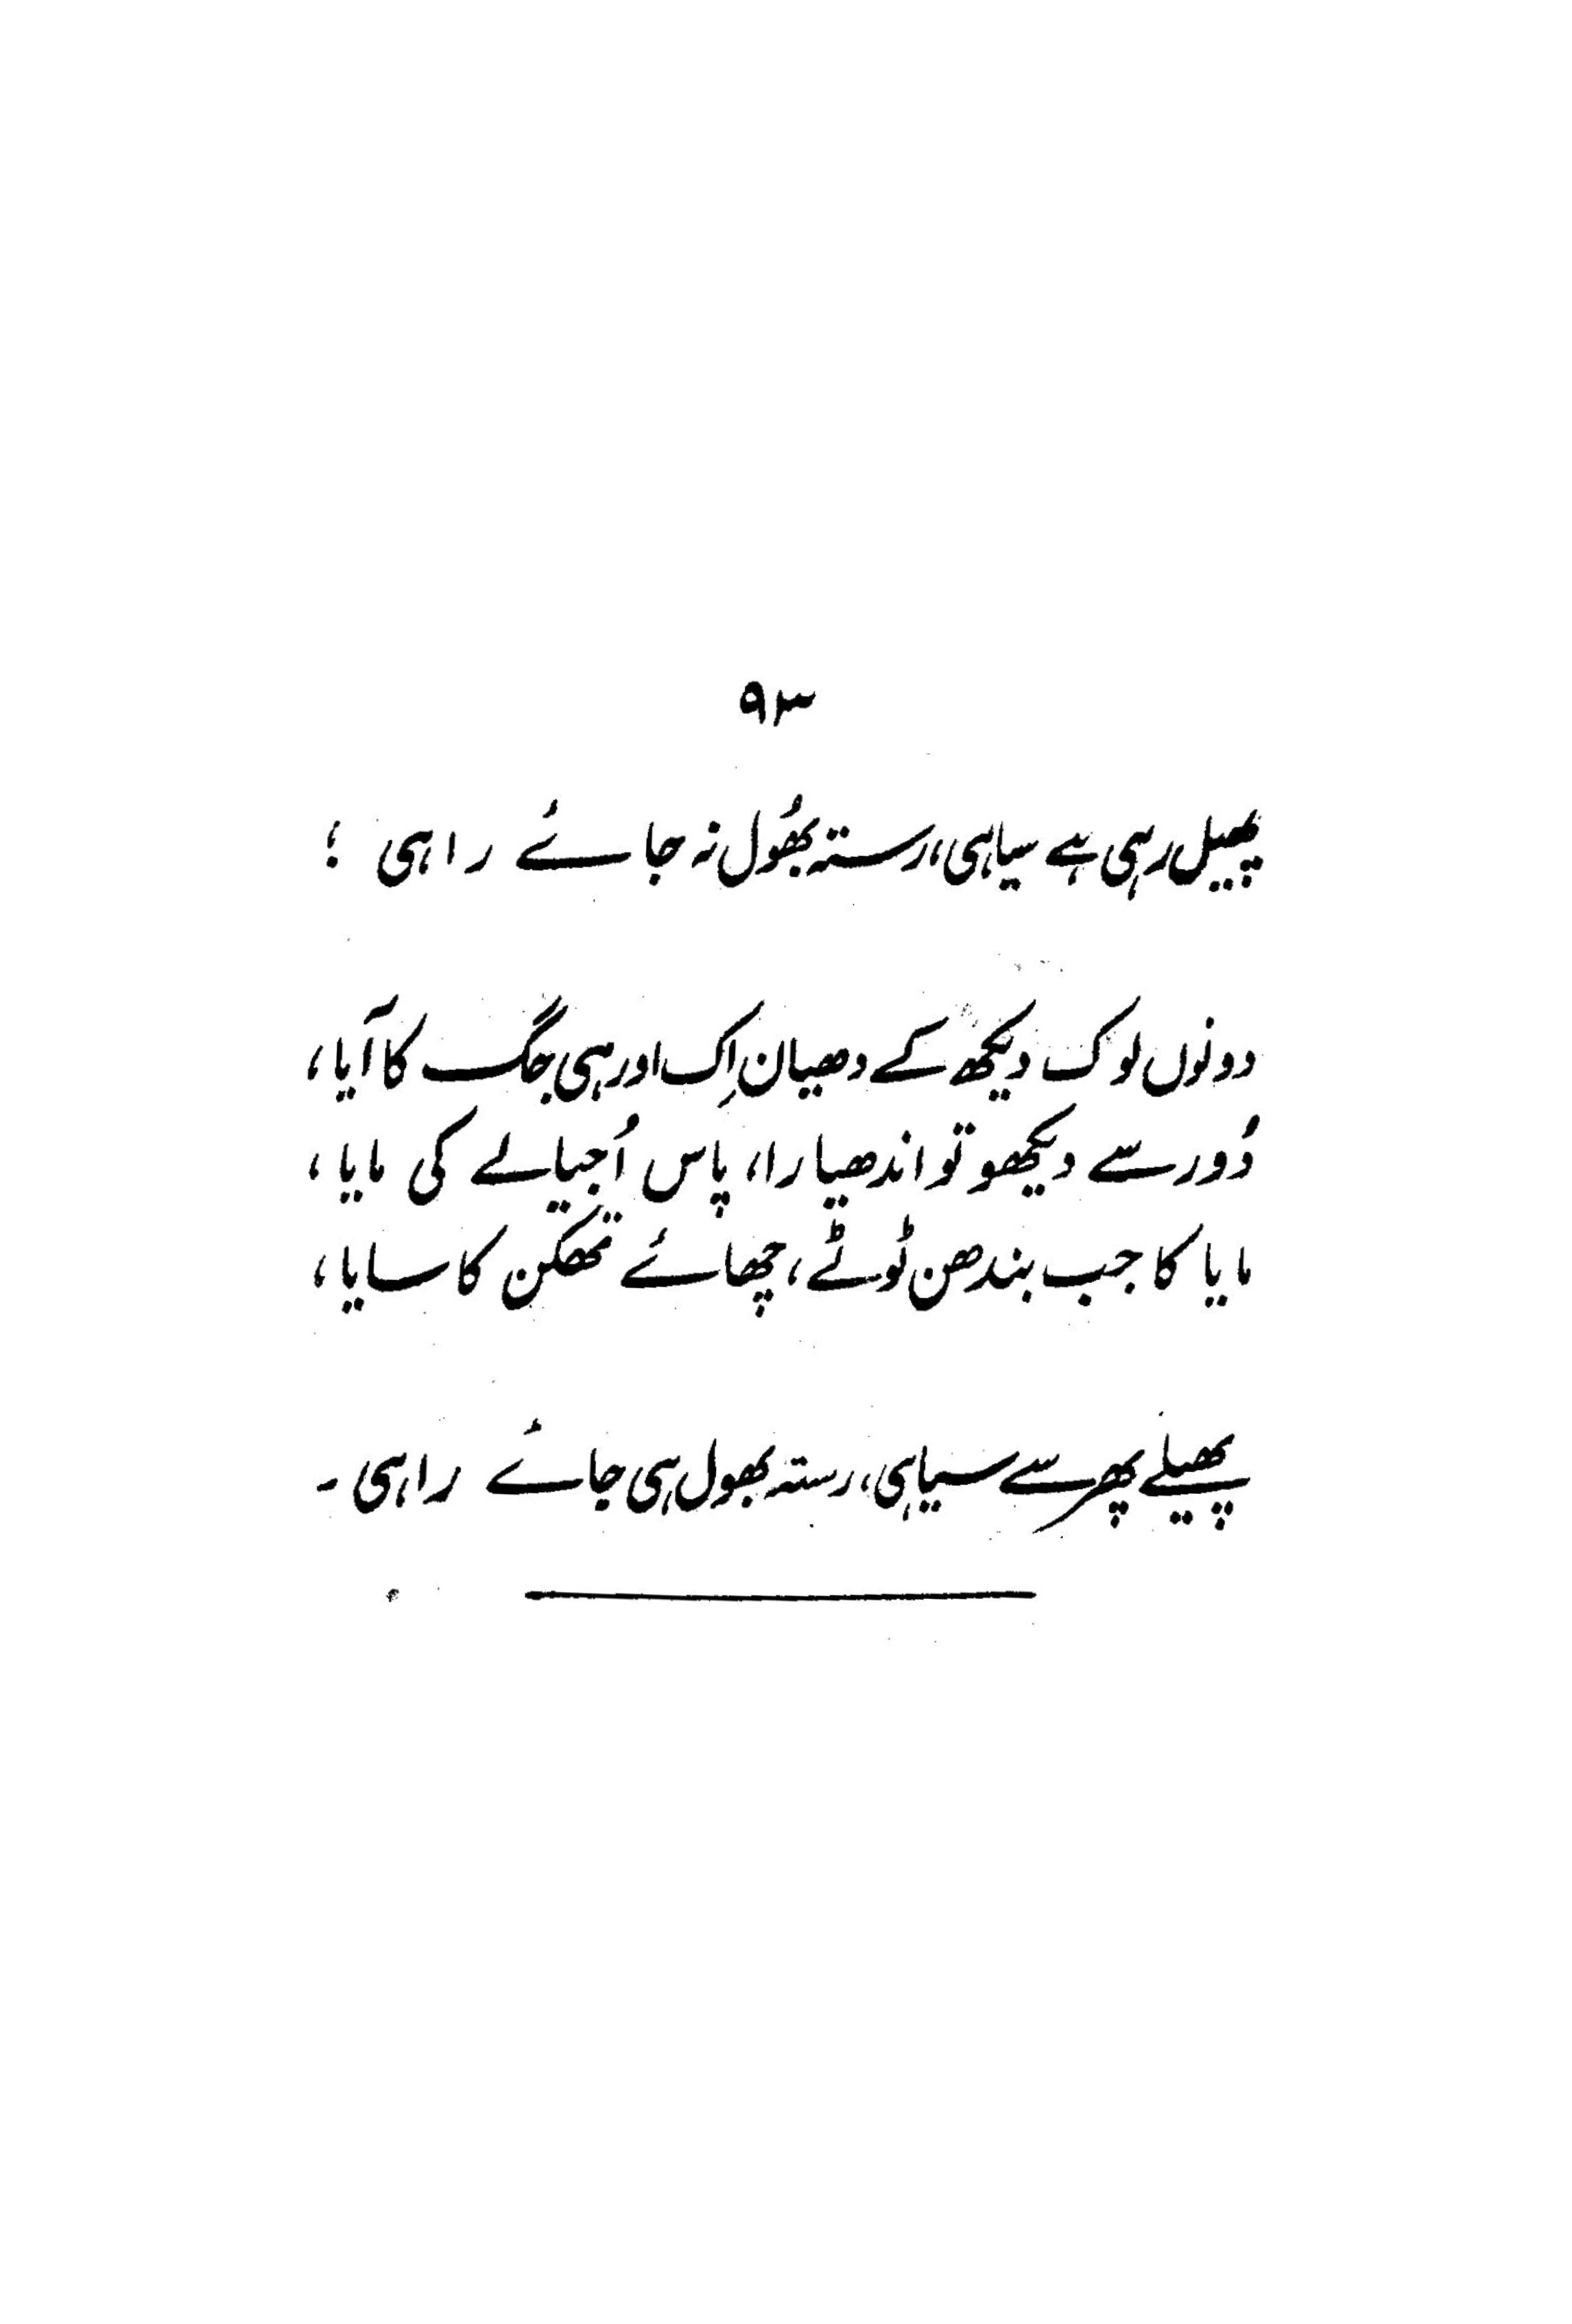 ۹۳
پھیل رہی ہے سیاہی، رستہ بھُول نہ جائے راہی ؛
دونوں لوک دیکھ کے دھیان اِک اور ہی جگ کا آیا،
دُور سے دیکھو تو اندھیارا، پاس اُجیالے کی مایا،
مایا کا جب بندھن ٹوٹے، چھائے تھکن کا سایا،
پھیلے پھر سے سیاہی، رستہ بھول ہی جائے راہی ۔